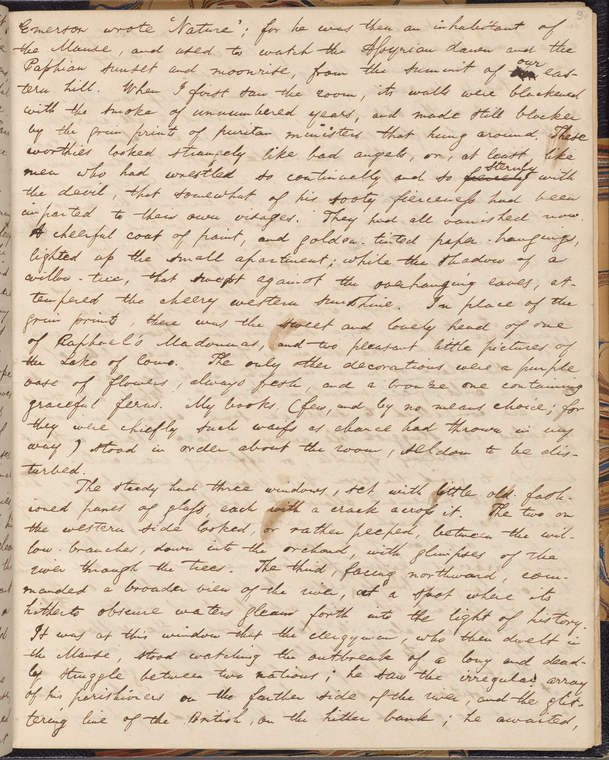 3
Emerson wrote 'Nature'; for he was then an inhabitant of
the Manse, and used to watch the Assyrian dawn and the
Paphian sunset and moonrise, from the summit of our eas-
tern hill. When I first saw the room, its walls were blackened
with the smoke of unnumbered years, and made still blacker
by the grim prints of puritan ministers that hung around. These
worthies looked strangely like bad angels, or, at least, like
men who had wrestled so continually and so sternly with
the devil, that somewhat of his sooty fierceness had been
imparted to their own visages. They had all vanished now.
A cheerful coat of paint, and golden-tinted paper-hangings,
lighted up the small apartment; while the shadow of a
willow-tree, that swept against the overhanging eaves, at-
tempered the cheery western sunshine. In place of the
grim prints, there was the sweet and lovely head of one
of Raphael's Madonnas, and two pleasant little pictures of
the Lake of Como. The only other decorations were a purple
vase of flowers, always fresh, and a bronze one containing
graceful ferns. My books (few, and by no means choice; for
they were chiefly such waifs as chance had thrown in my
way) stood in order about the room, seldom to be dis-
turbed.
The study had three windows, set with little, old-fash-
ioned panes of glass, each with a crack across it. The two on
the western side looked, or rather peeped, between the wil-
low-branches, down into the orchard, with glimpses of the
river through the trees. The third, facing northward, com-
manded a broader view of the river, at a spot where its
hitherto obscure waters gleam forth into the light of history.
It was at this window that the clergyman, who then dwelt in
the Manse, stood watching the outbreak of a long and dead-
ly struggle between two nations; he saw the irregular array
of his parishioners on the farther side of the river, and the glit-
tering line of the British, on the hither bank; he awaited,